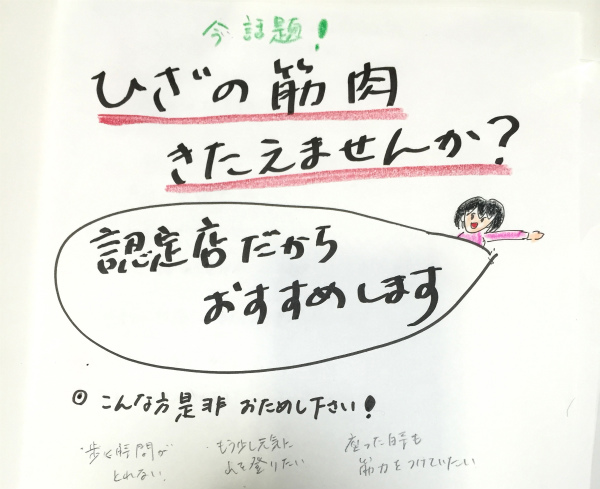 今話題!
ひざの筋肉
きたえませんか?
認定店だから
おすすめします
◎ こんな方是非 おためし下さい!
・歩く時間が
とれない
・もう少し元気に
山を登りたい
座った時も
筋力をつけていたい